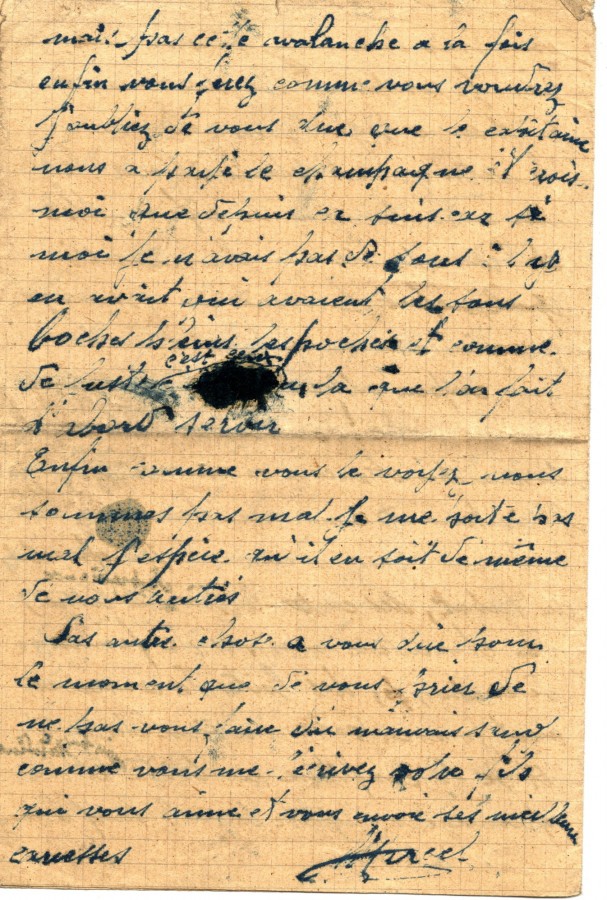 mais pas cette avalanche a la fois
enfin vous ferez comme vous voudrez
J'oubliez de vous dire que le capitaine
nous a payé le champagne et crois
moi que depuis
moi je n'avais pas de sous il y
en avait qui avaient les sous
boches pleins les poches et comme
c'est ceux
de juste la que l'on fait
d'abord servir
Enfin comme vous le voyez nous
sommes pas mal je me porte pas
mal J'espère qu'il en soit de même
de vous autres
Pas autre chose a vous dire pour
le moment que de vous prier de
ne pas vous faire du mauvais sang
comme vous me l'écrivez votre fils
qui vous aime et vous envoie ses meilleures
caresses Marcel